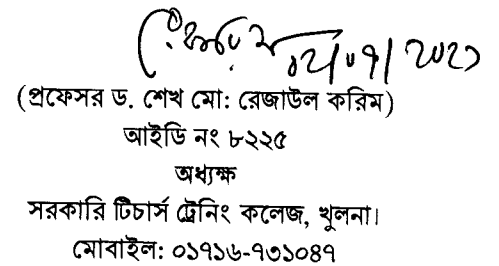 ০২/০৭/২০২১
(প্রফেসর ড. শেখ মো: রেজাউল করিম)
আইডি নং ৮২২৫
অধ্যক্ষ
সরকারি টিচার্স ট্রেনিং কলেজ, খুলনা।
মোবাইল: ০১৭১৬-৭৩১০৪৭